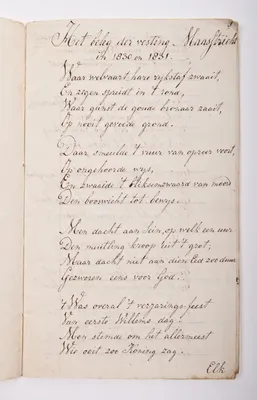 Het beleg der vesting Maastricht
in 1830 en 1831.
Waar welvaart, hare rijkstaf zwaait,
En zegen spreidt in 't rond,
Waar gunst de goude
Op nooit grond.
Daar smeulde 't vuur van oproer voort,
Op ongehoorde wijs,
En zwaaide 't bliksemzwaard van moord
Den booswicht tot bewys.
Men dacht aan Sein, op welk een uur
Den muitling kroop uit 't grot;
Maar dacht niet aan dien Eed zoo duur
Gezworen eens voor God.
't Was overal 't verjarings feest
Van eerste Willems dag.
Men stemde om het allermeest
Wie ooit zoo Koning zag.
Elk